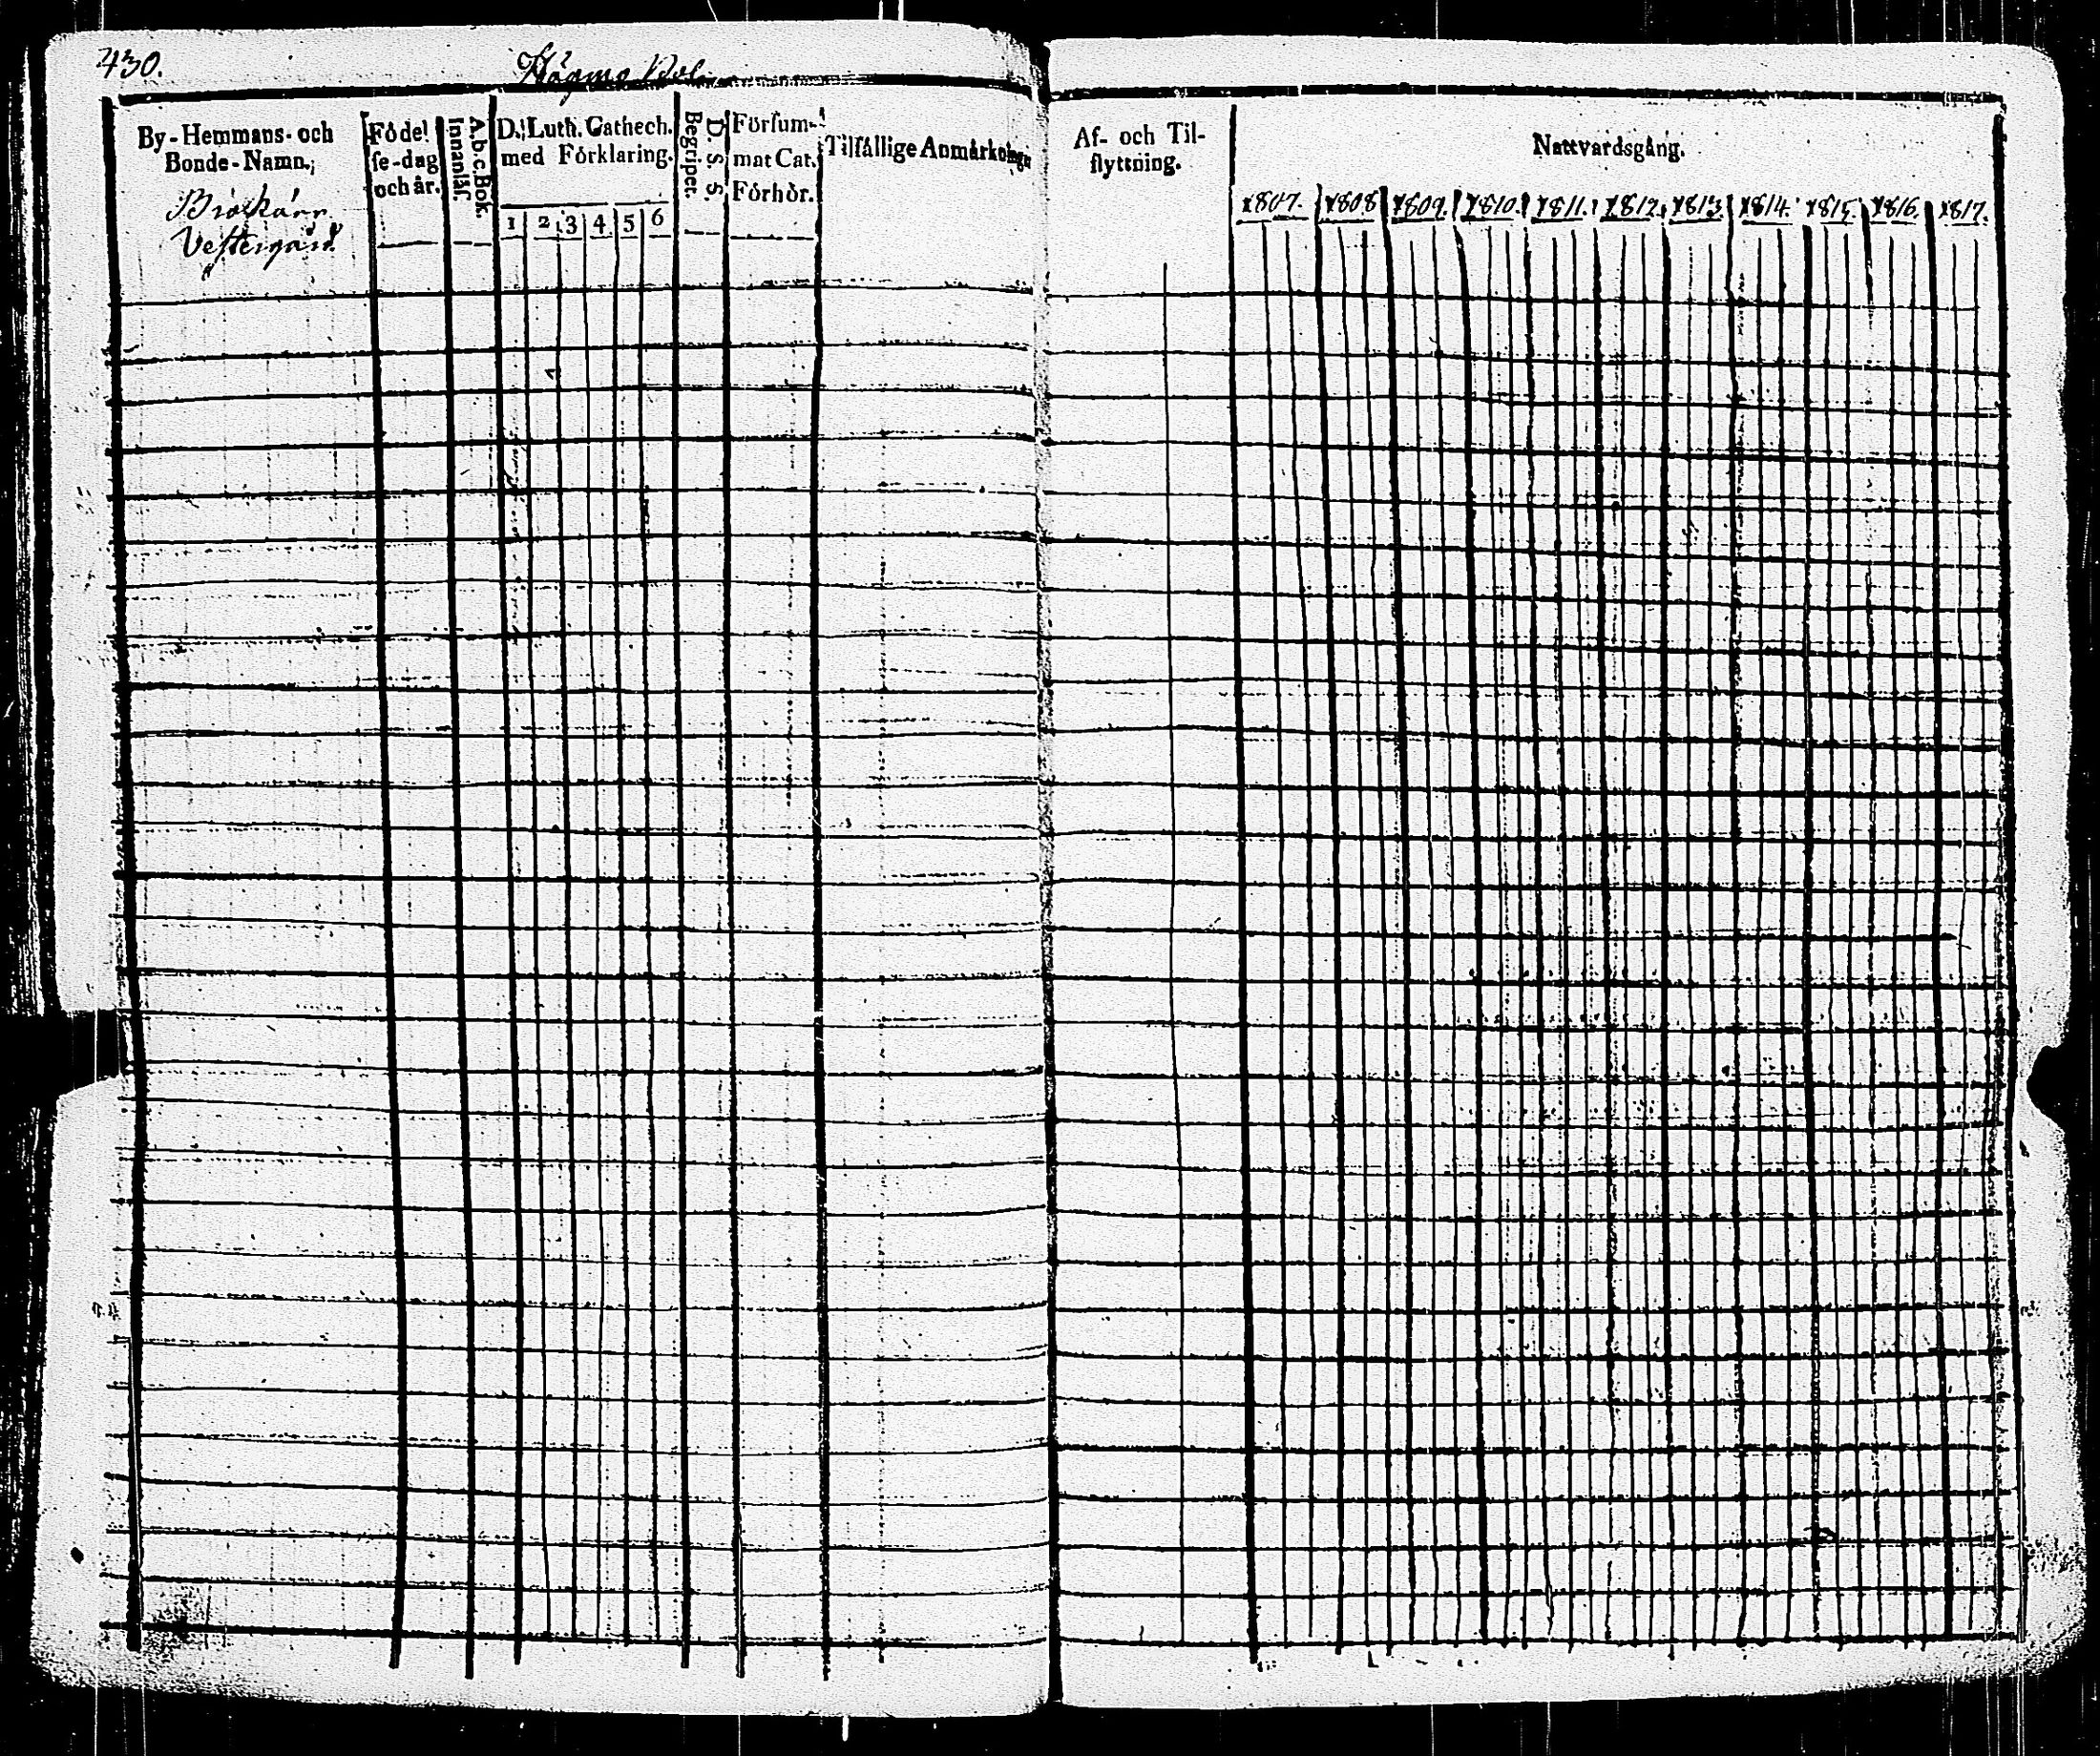 430.
By-Hemmans- och
Bonde-Namn.
Vestergård
Födel
se-dag
och år.
A.b.c. Bok.
Innanläs.
D. Luth. Cathech.
med Förklaring.
1 2 3 4 5 6
D. S. S.
Begripet.
Försum-
mat Cat.
Förhör.
Tilfällige Anmärkningar
Af- och Til-
flyttning.
Nattvardsgång.
1807. 1808 1809. 1810. 1811. 1812. 1813. 1814. 1815. 1816. 1817.